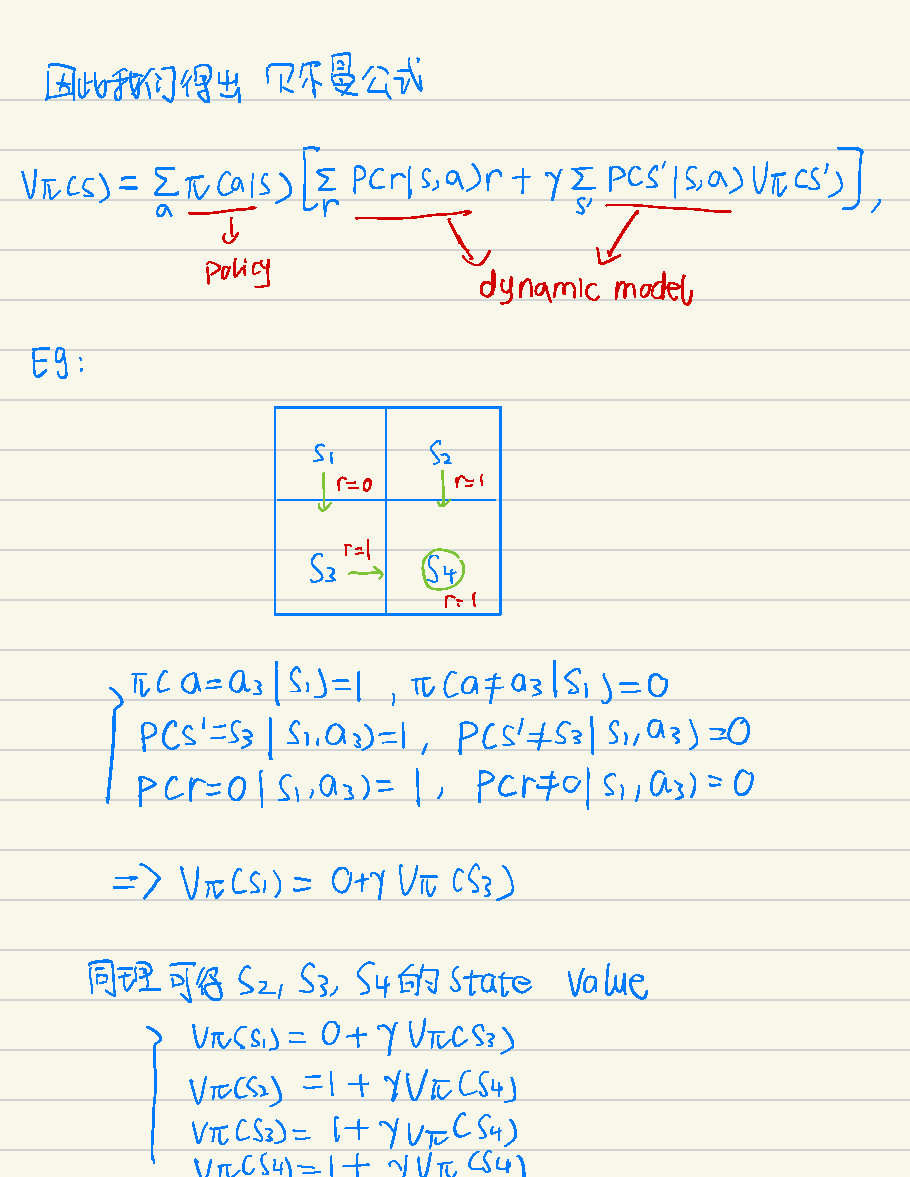 因此我们得出 贝尔曼公式
Vπ(s) = Σₐ π(a|s) [Σᵣ P(r|s,a)r + γ Σₛ′ P(s′|s,a)Vπ(s′)],
policy
dynamic model
Eg:
S₁ S₂
r=0 r=1
r=1
S₃ S₄
r=1
π(a=a₃|s₁)=1, π(a≠a₃|s₁)=0
P(s′=s₃|s₁,a₃)=1, P(s′≠s₃|s₁,a₃)=0
P(r=0|s₁,a₃)=1, P(r≠0|s₁,a₃)=0
=> Vπ(s₁) = 0+γVπ(s₃)
同理可得 S₂, S₃, S₄的 state value
Vπ(s₁) = 0 + γVπ(s₃)
Vπ(s₂) = 1 + γVπ(s₄)
Vπ(s₃) = 1 + γVπ(s₄)
Vπ(s₄) = 1 + γVπ(s₄)